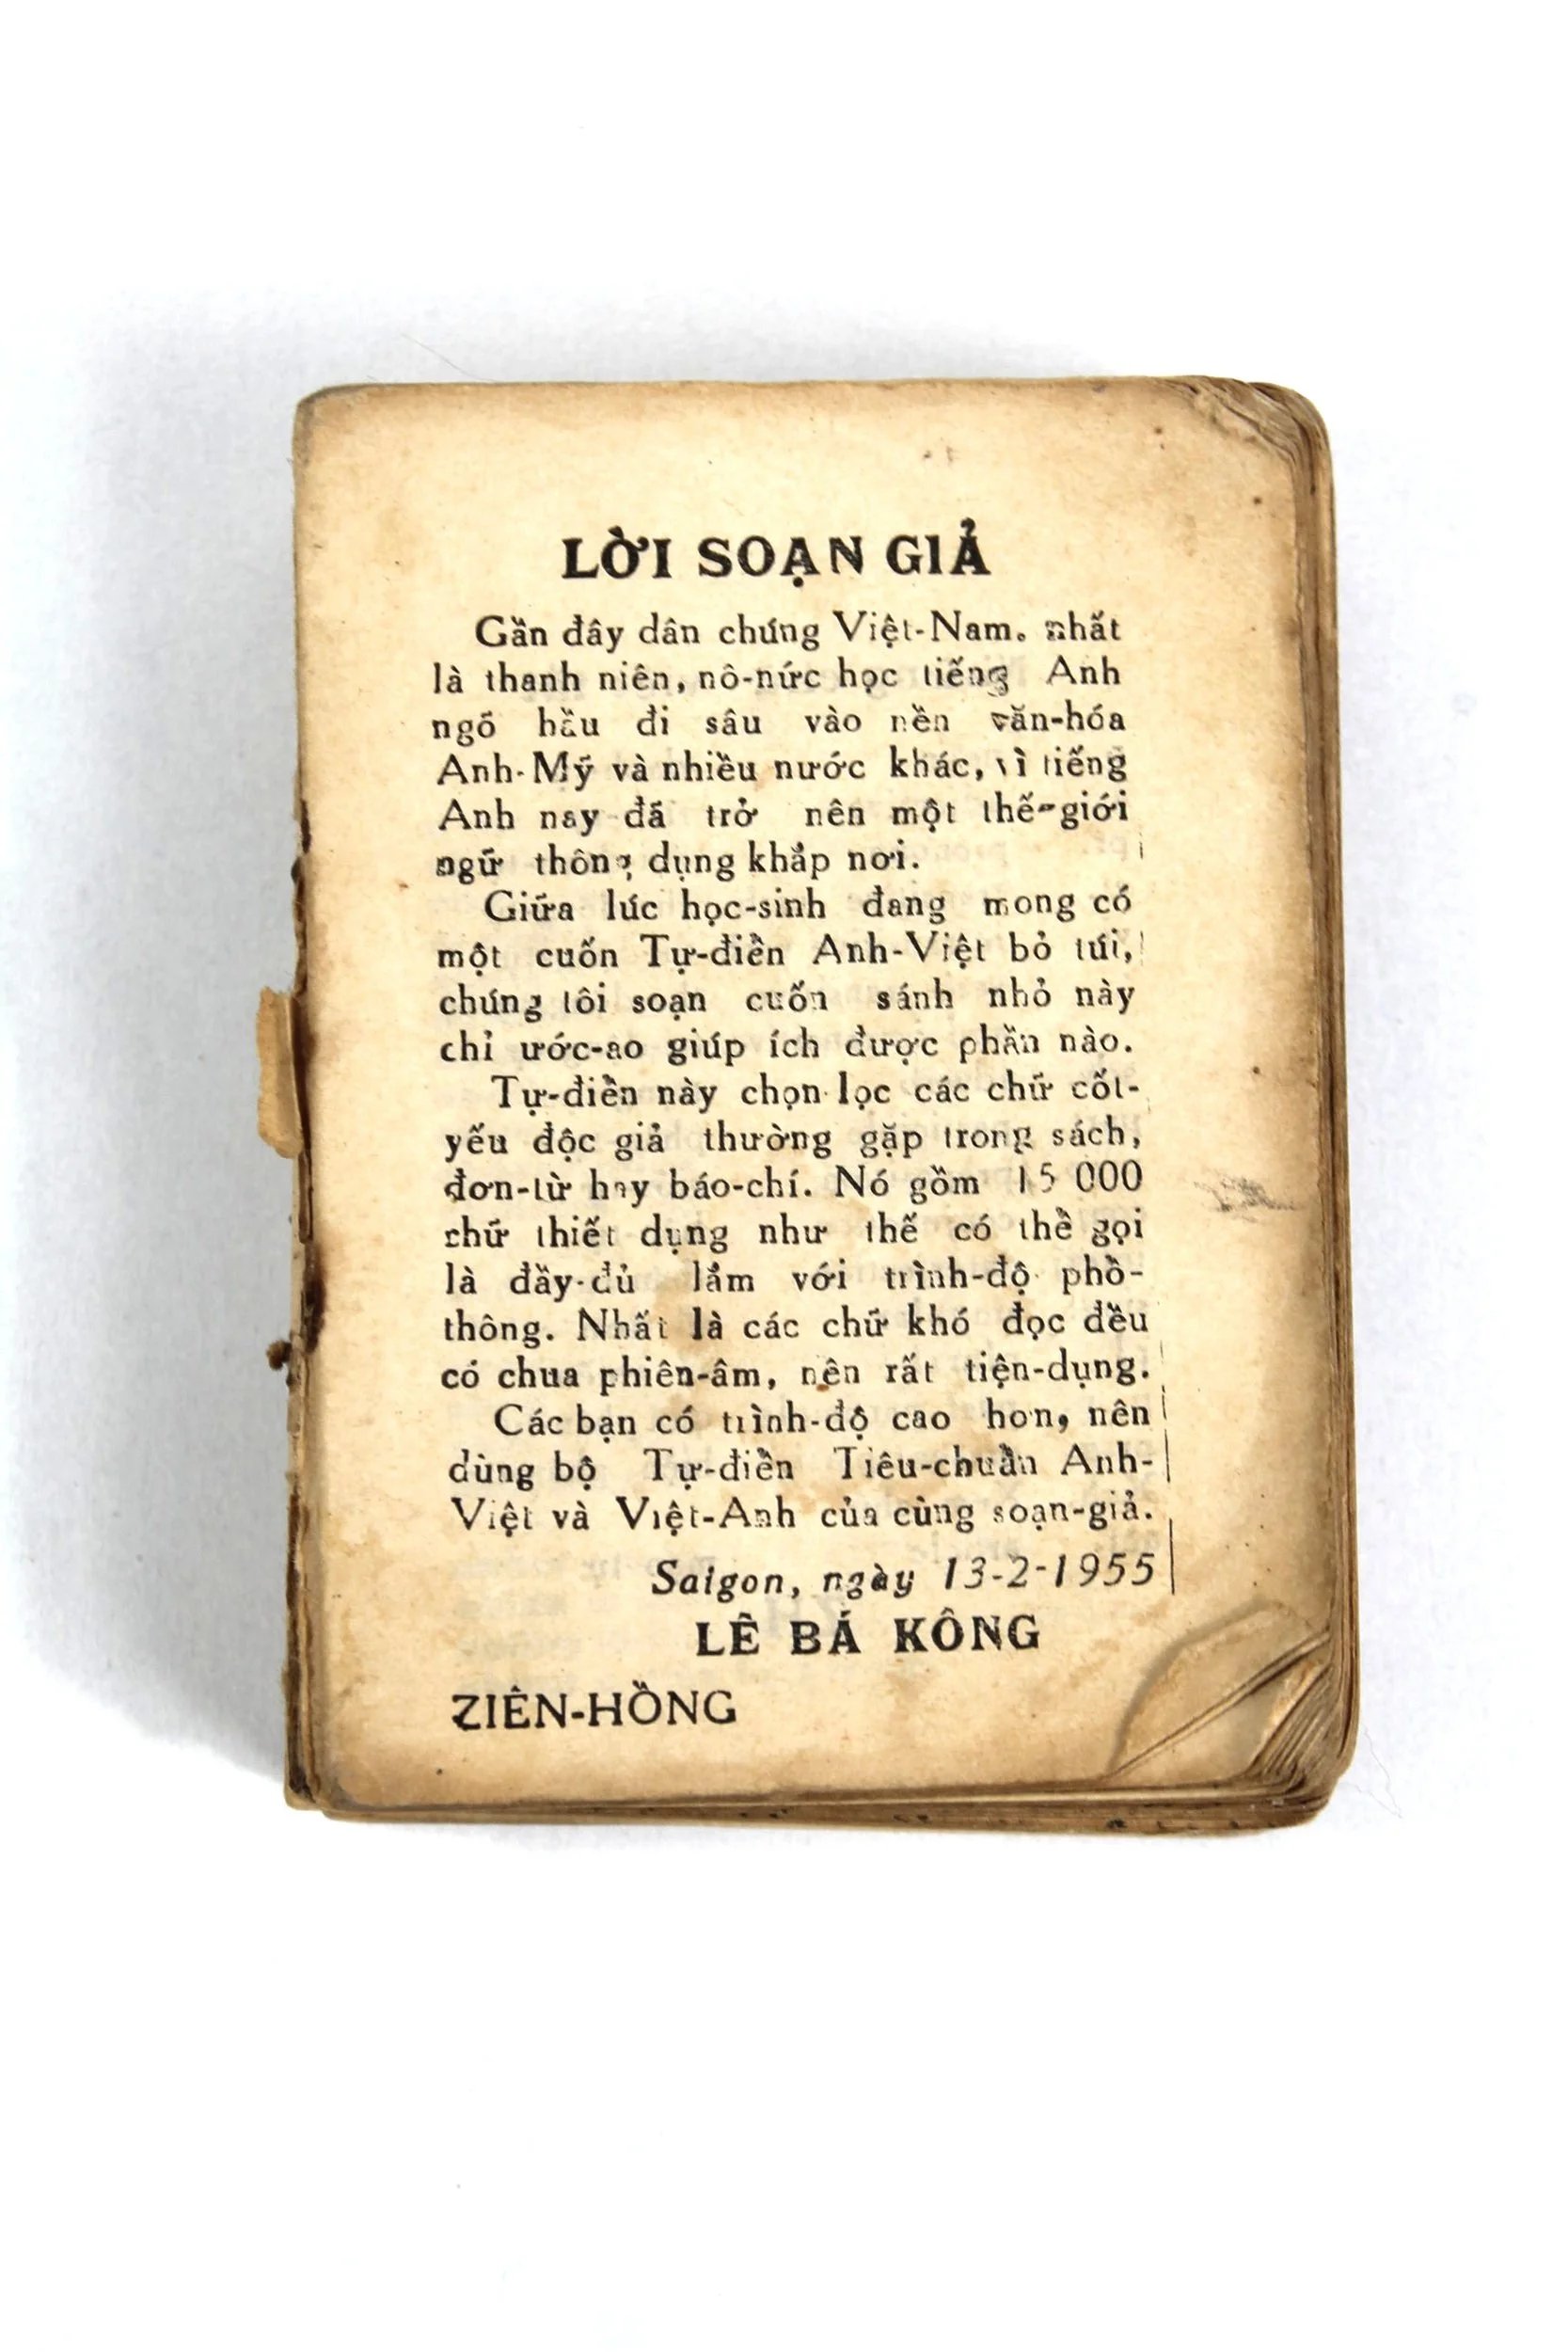 LỜI SOẠN GIẢ
Gần đây dân chứng Việt-Nam. nhất
là thanh niên, nô-nức học tiếng Anh
ngõ hầu đi sâu vào nền văn-hóa
Anh-Mỹ và nhiều nước khác, vì tiếng
Anh nay đã trở nên một thế-giới
ngữ thông dụng khắp nơi.
Giữa lúc học-sinh đang mong có
một cuốn Tự-điển Anh-Việt bỏ túi,
chúng tôi soạn cuốn sánh nhỏ này
chỉ ước-ao giúp ích được phần nào.
Tự-điển này chọn lọc các chữ cốt-
yếu độc giả thường gặp trong sách,
đơn-từ hay báo-chí. Nó gồm 15 000
chữ thiết dụng như thế có thể gọi
là đầy-đủ lắm với trình-độ phổ-
thông. Nhất là các chữ khó đọc đều
có chua phiên-âm, nên rất tiện-dụng.
Các bạn có trình-độ cao hon, nên
dùng bộ Tự-điển Tiêu-chuẩn Anh-
Việt và Việt-Anh của cùng soạn-giả.
Saigon, ngày 13-2-1955
LÊ BÁ KÔNG
ZIÊN-HỒNG